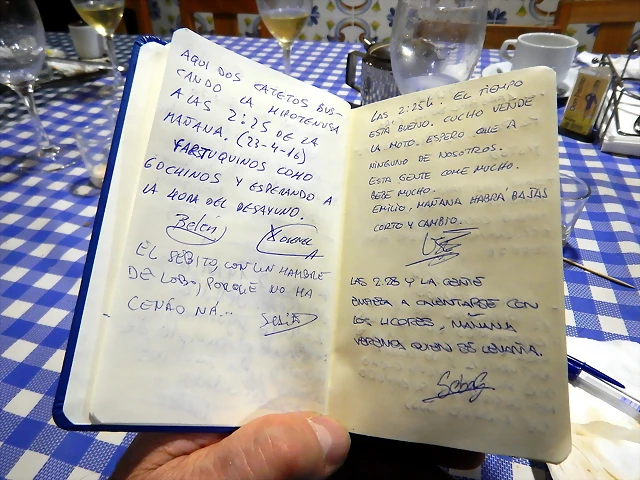 AQUI DOS CATETOS BUS-
CANDO LA HIPOTENUSA
A LAS 2:25 DE LA
MAÑANA. (23-4-16)
COMO
GOCHINOS Y ESPERANDO A
LA HORA DEL DESAYUNO.
Belén
EL SEBITO, CON UN HAMBRE
DE LOBO, PORQUE NO HA
CENAO NÁ...
LAS 2:25h. EL TIEMPO
ESTÁ BUENO. CUCHO VENDE
LA MOTO. ESPERO QUE A
NINGUNO DE NOSOTROS.
ESTA GENTE COME MUCHO.
BEBE MUCHO.
EMILIO, MAÑANA HABRÁ BAJAS
CORTO Y CAMBIO.
LAS 2:28 Y LA GENTE
EMPIEZA A CALENTARSE CON
LOS LICORES, MAÑANA
VEREMOS QUIEN SE LEVANTA.